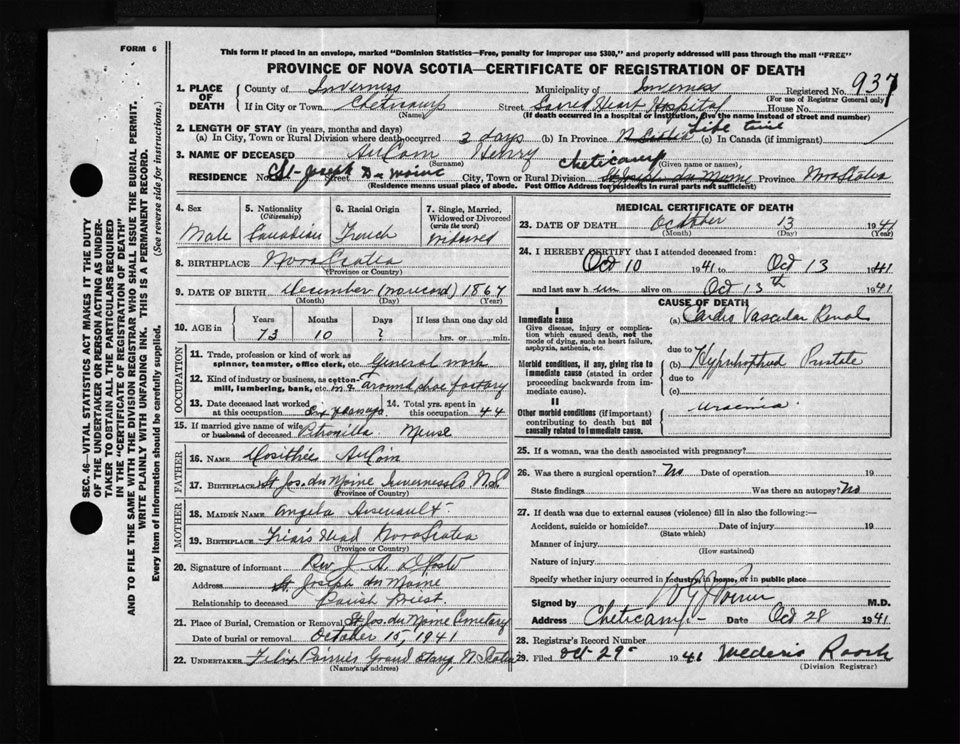 FORM 6
This form if placed in an envelope, marked "Dominion Statistics—Free, penalty for improper use $300," and properly addressed will pass through the mail "FREE"
PROVINCE OF NOVA SCOTIA—CERTIFICATE OF REGISTRATION OF DEATH
SEC. 46—VITAL STATISTICS ACT MAKES IT THE DUTY
OF THE UNDERTAKER OR PERSON ACTING AS UNDER-
TAKER TO OBTAIN ALL THE PARTICULARS REQUIRED
IN THE "CERTIFICATE OF REGISTRATION OF DEATH"
AND TO FILE THE SAME WITH THE DIVISION REGISTRAR WHO SHALL ISSUE THE BURIAL PERMIT.
WRITE PLAINLY WITH UNFADING INK. THIS IS A PERMANENT RECORD.
Every item of information should be carefully supplied. (See reverse side for instructions.)
1. PLACE OF DEATH
County of Inverness Municipality of Inverness Registered No. 937
(For use of Registrar General only)
If in City or Town Cheticamp Street Sacred Heart Hospital House No.
(Name) (If death occurred in a hospital or institution, give the name instead of street and number)
2. LENGTH OF STAY (in years, months and days)
(a) In City, Town or Rural Division where death occurred 3 days (b) In Province Life time (c) In Canada (if immigrant)
3. NAME OF DECEASED AuCoin Henry
(Surname) (Given name or names)
RESIDENCE No. St-Joseph Du Moine Street City, Town or Rural Division Cheticamp St Joseph du Moine Province Nova Scotia
(Residence means usual place of abode. Post Office Address for residents in rural parts not sufficient)
4. Sex Male
5. Nationality (Citizenship) Canadian
6. Racial Origin French
7. Single, Married, Widowed or Divorced (write the word) Widowed
8. BIRTHPLACE Nova Scotia
(Province or Country)
9. DATE OF BIRTH December (no record) 1867
(Month) (Day) (Year)
10. AGE in Years Months Days If less than one day old
73 10 ? hrs. or min.
OCCUPATION
11. Trade, profession or kind of work as spinner, teamster, office clerk, etc. General work
12. Kind of industry or business, as cotton-mill, lumbering, bank, etc. around shoe factory
13. Date deceased last worked at this occupation Six years ago 14. Total yrs. spent in this occupation 44
15. If married give name of wife or husband of deceased Petronilla Meuse
FATHER
16. NAME Dosithée AuCoin
17. BIRTHPLACE St Jos. du Moine Inverness Co N.S.
(Province or Country)
MOTHER
18. MAIDEN NAME Angela Arsenault
19. BIRTHPLACE Friar's Head Nova Scotia
(Province or Country)
20. Signature of informant Rev. J. A. D
Address St. Joseph du Moine
Relationship to deceased Parish Priest.
21. Place of Burial, Cremation or Removal St. Jos. du Moine Cemetary
Date of burial or removal October 15, 1941
22. UNDERTAKER Felix Grand Etang, N Scotia
(Name and address)
MEDICAL CERTIFICATE OF DEATH
23. DATE OF DEATH October 13 1941
(Month) (Day) (Year)
24. I HEREBY CERTIFY that I attended deceased from:
Oct 10 1941 to Oct 13 1941
and last saw him alive on Oct 13th 1941
CAUSE OF DEATH
I
Immediate cause
Give disease, injury or complication which caused death, not the mode of dying, such as heart failure, asphyxia, asthenia, etc.
(a) Cardio Vascular Renal
due to
Morbid conditions, if any, giving rise to immediate cause (stated in order proceeding backwards from immediate).
(b) Hypertrophied Prostate
due to
(c)
II
Other morbid conditions (if important) contributing to death but not causally related to immediate cause.
Uraemia.
25. If a woman, was the death associated with pregnancy?
26. Was there a surgical operation? No Date of operation 19
State findings Was there an autopsy? No
27. If death was due to external causes (violence) fill in also the following:—
Accident, suicide or homicide? Date of injury 19
(State which)
Manner of injury
(How sustained)
Nature of injury
Specify whether injury occurred in industry, in home, or in public place
Signed by M.D.
Address Cheticamp Date Oct 28 1941
28. Registrar's Record Number
29. Filed Oct 29 1941 Roach
(Division Registrar)